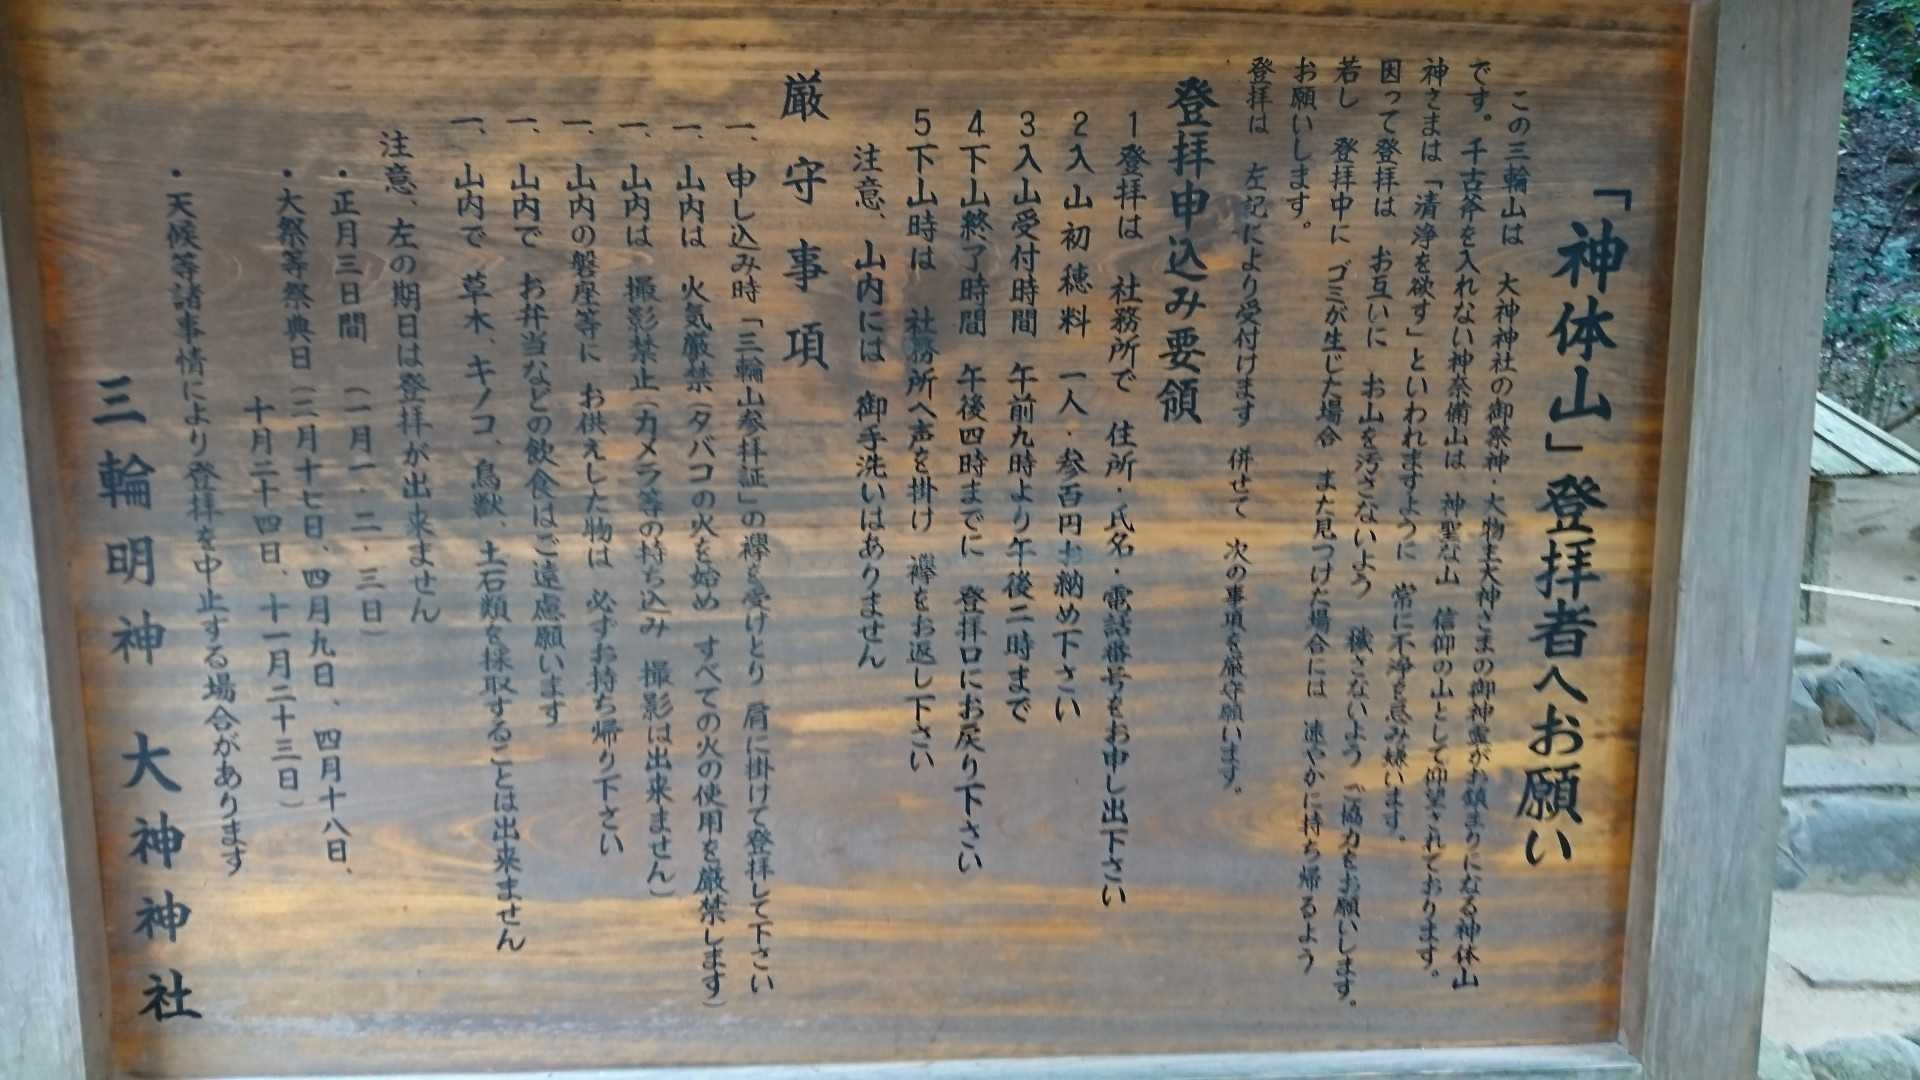 「神体山」登拝者へお願い
この三輪山は　大神神社の御祭神・大物主大神さまの御神霊がお鎮まりになる神体山
です。千古斧を入れない神奈備山は、神聖な山　信仰の山として仰望されております。
神さまは「清浄を欲す」といわれますように　常に不浄を忌み嫌います。
因って登拝は　お互いに　お山を汚さないよう　穢さないよう　ご協力をお願いします。
若し　登拝中に　ゴミが生じた場合　また見つけた場合には　速やかに持ち帰るよう
お願いします。
登拝は　左記により受付けます　併せて　次の事項を厳守願います。
登拝申込み要領
1 登拝は　社務所で　住所・氏名・電話番号をお申し出下さい
2 入山初穂料　一人・参百円お納め下さい
3 入山受付時間　午前九時より午後二時まで
4 下山終了時間　午後四時までに　登拝口にお戻り下さい
5 下山時は　社務所へ声を掛け　襷をお返し下さい
注意、山内には　御手洗いはありません
厳守事項
一、申し込み時「三輪山参拝証」の襷を受けとり　肩に掛けて登拝して下さい
一、山内は　火気厳禁（タバコの火を始め　すべての火の使用を厳禁します）
一、山内は　撮影禁止（カメラ等の持ち込み　撮影は出来ません）
一、山内の磐座等に　お供えした物は　必ずお持ち帰り下さい
一、山内で　お弁当などの飲食はご遠慮願います
一、山内で　草木、キノコ、鳥獣、土石類を採取することは出来ません
注意、左の期日は登拝が出来ません
・正月三日間　（一月一・二・三日）
・大祭等祭典日（二月十七日、四月九日、四月十八日、
十月二十四日、十一月二十三日）
・天候等諸事情により登拝を中止する場合があります
三輪明神　大神神社